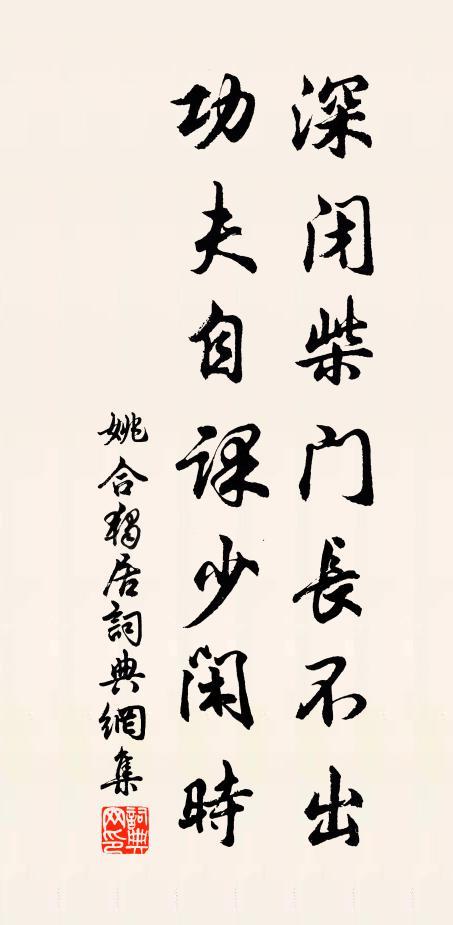 深闭柴门長不出
功夫自課少閑時
姚合獨居詞典網集
詞典網印